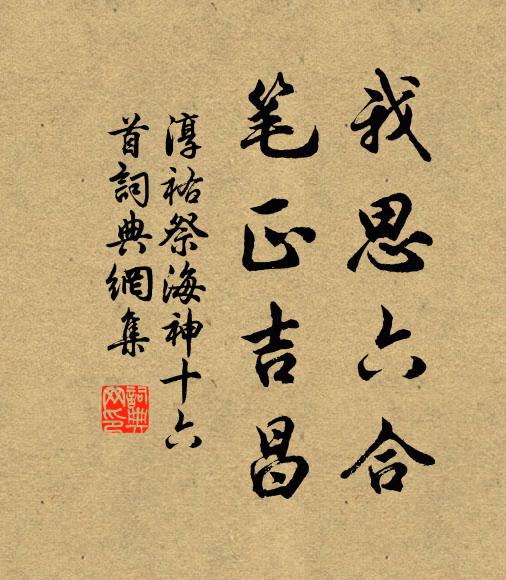 我思六合
笔正吉昌
淳祐祭海神十六
首詞典網集
詞典
网印